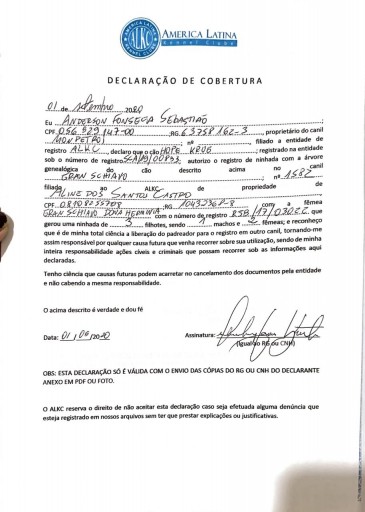 AMERICA LATINA
KENNEL CLUBE
ALKC
DECLARAÇÃO DE COBERTURA
01 de setembro 2020
Eu ANDERSON FONSECA SEBASTIÃO
CPF 056.929.147-00 RG 63758162-3, proprietário do canil
MONPETROI nº , filiado a entidade de
registro ALKC, declaro que o cão HOPE KRUG registrado na entidade
sob o número de registro autorizo o registro de ninhada com a árvore
genealógica do cão descrito acima no canil
GRAN SCHIAVO nº 1582
filiada ao ALKC de propriedade de
ALINE DOS SANTOS CASTRO
CPF 08108255708 RG com a fêmea
GRAN SCHIAVO DONA HERMINIA com o número de registro que
gerou uma ninhada de 3 filhotes, sendo 1 machos e 2 fêmeas; e reconheço
que é de minha total ciência a liberação do padreador para o registro em outro canil, tornando-me
assim responsável por qualquer causa futura que venha recorrer sua utilização, sendo de minha
inteira responsabilidade ações cíveis e criminais que possam recorrer sob as informações aqui
declaradas.
Tenho ciência que causas futuras podem acarretar no cancelamento dos documentos pela entidade
e não cabendo a mesma responsabilidade.
O acima descrito é verdade e dou fé
Data: 01/09/2020 Assinatura:
(Igual ao RG ou CNH)
OBS: ESTA DECLARAÇÃO SÓ É VÁLIDA COM O ENVIO DAS CÓPIAS DO RG OU CNH DO DECLARANTE
ANEXO EM PDF OU FOTO.
O ALKC reserva o direito de não aceitar esta declaração caso seja efetuada alguma denúncia que
esteja registrado em nossos arquivos sem ter que prestar explicações ou justificativas.